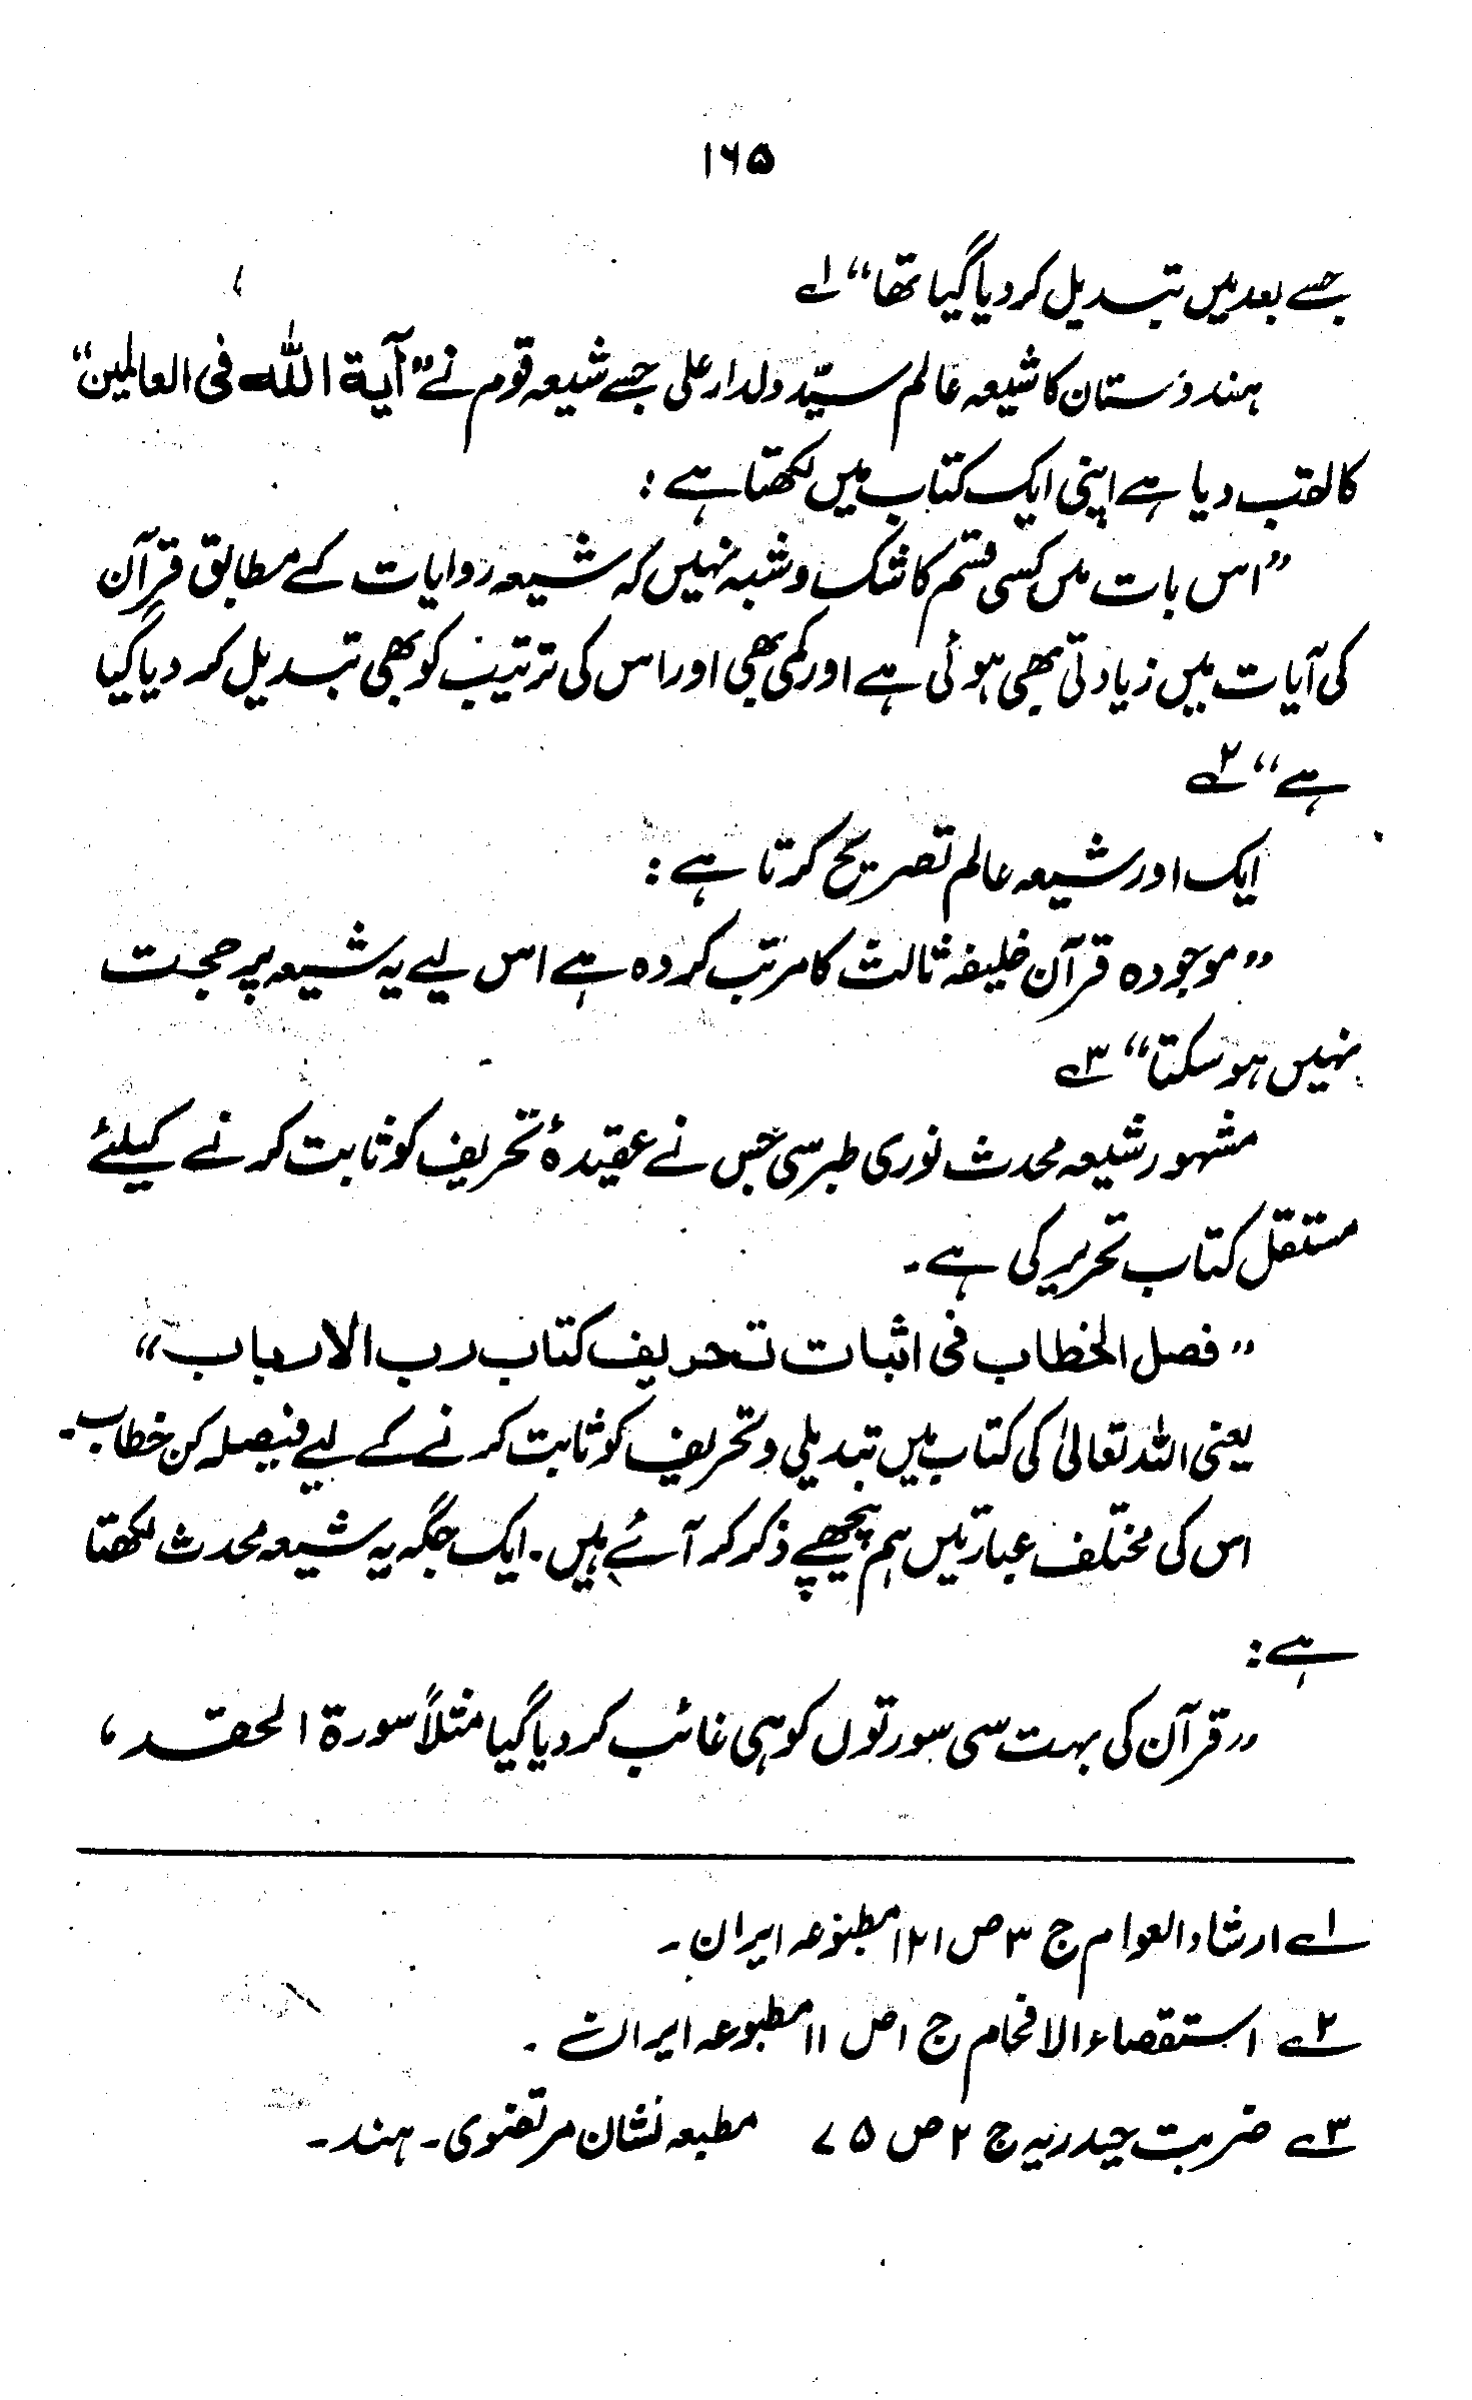 ۱۶۵
جسے بعد میں تبدیل کر دیا گیا تھا“ ۱؎
ہندوستان کا شیعہ عالم سیّد دلدار علی جسے شیعہ قوم نے ”آیة اللّٰه فی العالمین“
کا لقب دیا ہے اپنی ایک کتاب میں لکھتا ہے :
”اس بات میں کسی قسم کا شک و شبہ نہیں کہ شیعہ روایات کے مطابق قرآن
کی آیات میں زیادتی بھی ہوئی ہے اور کمی بھی اور اس کی ترتیب کو بھی تبدیل کر دیا گیا
ہے“ ۲؎
ایک اور شیعہ عالم تصریح کرتا ہے :
”موجودہ قرآن خلیفہ ثالث کا مرتب کردہ ہے اس لیے یہ شیعہ پر حجت
نہیں ہو سکتا“ ۳؎
مشہور شیعہ محدث نوری طبرسی جس نے عقیدۂ تحریف کو ثابت کرنے کیلئے
مستقل کتاب تحریر کی ہے۔
”فصل الخطاب فی اثبات تحریف کتاب رب الارباب“
یعنی اللہ تعالیٰ کی کتاب میں تبدیلی و تحریف کو ثابت کرنے کے لیے فیصلہ کن خطاب۔
اس کی مختلف عبارتیں ہم پیچھے ذکر کر آئے ہیں۔ ایک جگہ یہ شیعہ محدث لکھتا
ہے :
”قرآن کی بہت سی سورتوں کو ہی غائب کر دیا گیا مثلاً سورة الحقد ،
۱؎ ارشاد العوام ج ۳ ص ۱۲۱ مطبوعہ ایران۔
۲؎ استقصاء الافحام ج ۱ ص ۱۱ مطبوعہ ایران۔
۳؎ ضربت حیدریہ ج ۲ ص ۷۵ مطبعہ نشان مرتضوی۔ ہند۔